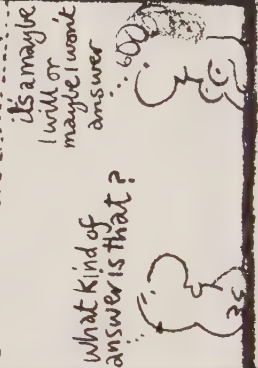 what kind of
answer is that?
it's a maybe
I will or
maybe I won't
answer